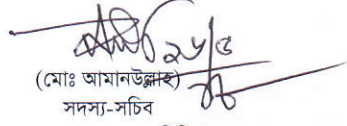 ২৮/৫
(মোঃ আমানউল্লাহ)
সদস্য-সচিব